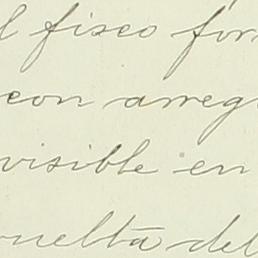 l fisco for
con arreg
visible en
vuelta del